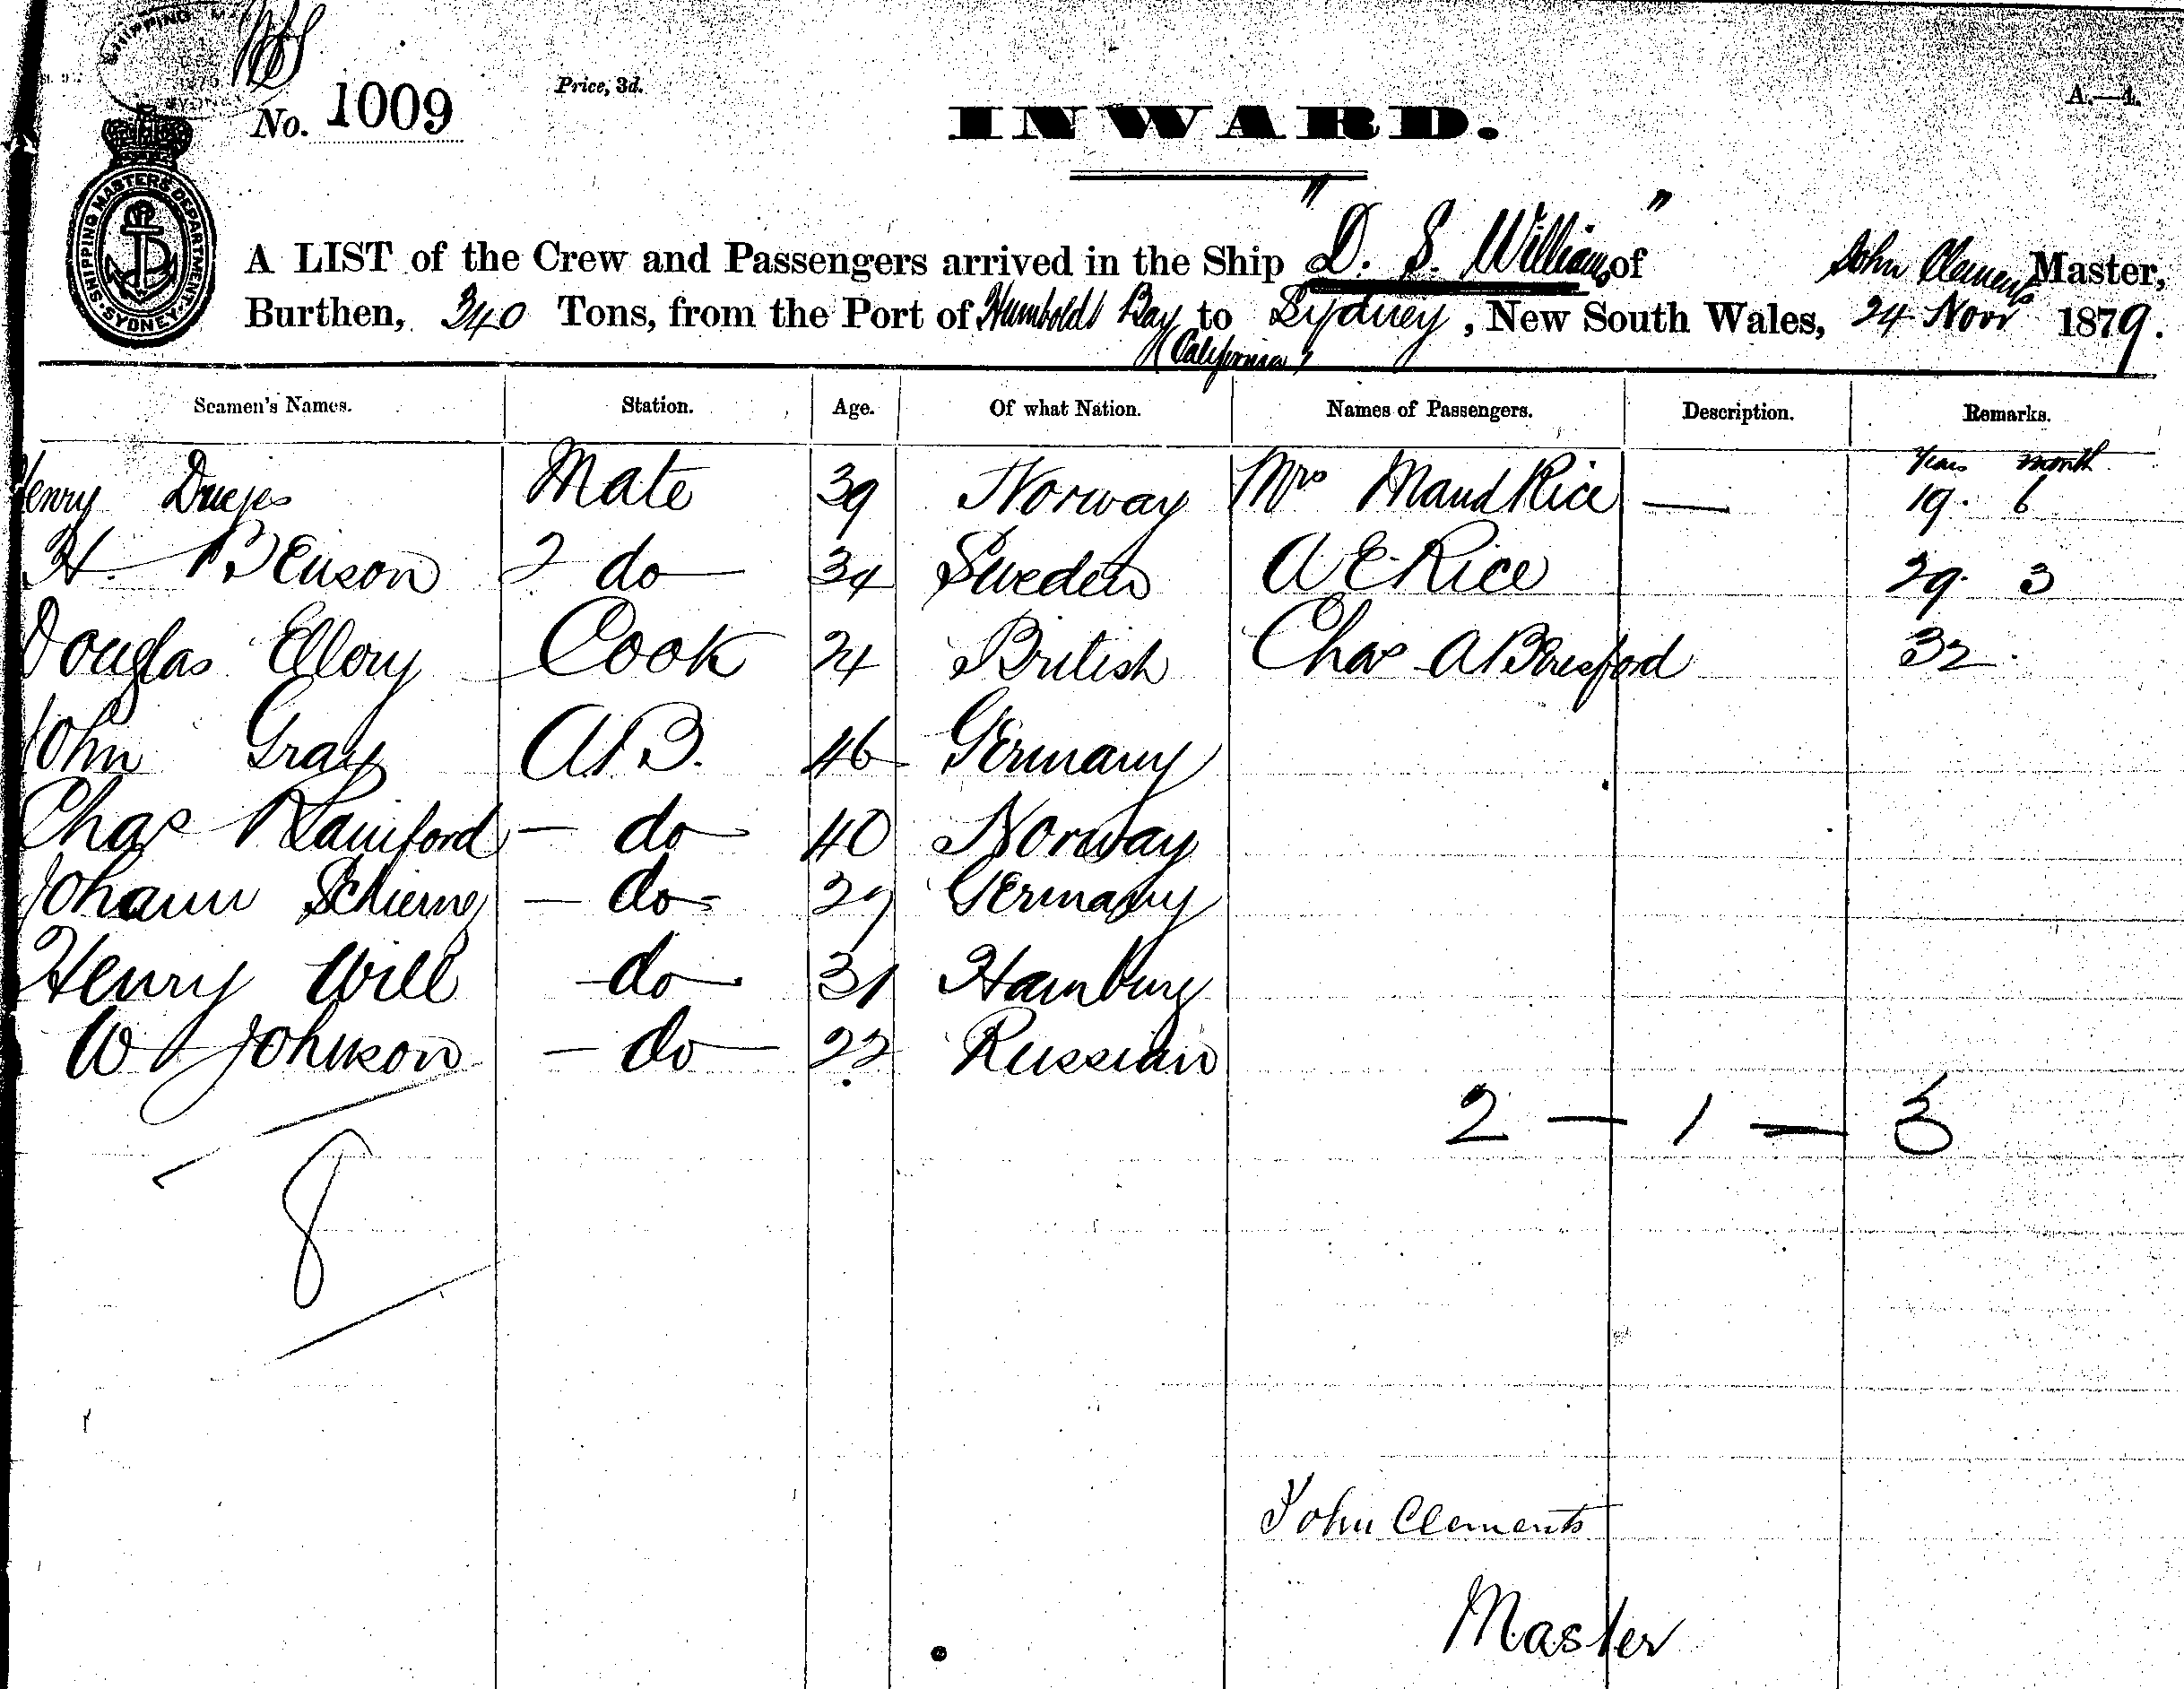 SHIPPING MA
1879
SYDNEY
No. 1009
Price, 3d.
INWARD.
A.—4.
SHIPPING MASTERS DEPARTMENT SYDNEY
A LIST of the Crew and Passengers arrived in the Ship "D. S. Williams" of John Clements Master,
Burthen, 340 Tons, from the Port of Humboldt Bay to Sydney, New South Wales, 24 Novr 1879.
(California)
Seamen's Names. Station. Age. Of what Nation. Names of Passengers. Description. Remarks.
Years month
Henry Mate 39 Norway Mrs Maud Rice — 19. 6
H. Benson 2 do 34 Sweden A E Rice 29. 3
Douglas Ellory Cook 24 British Chas A Beresford 32.
John Gray A.B. 46 Germany
Chas Rainford — do 40 Norway
Johann — do - 29 Germany
Henry Will - do 31 Hamburg
W Johnson — do — 22 Russian
2 — 1 — 3
8
John Clements
Master